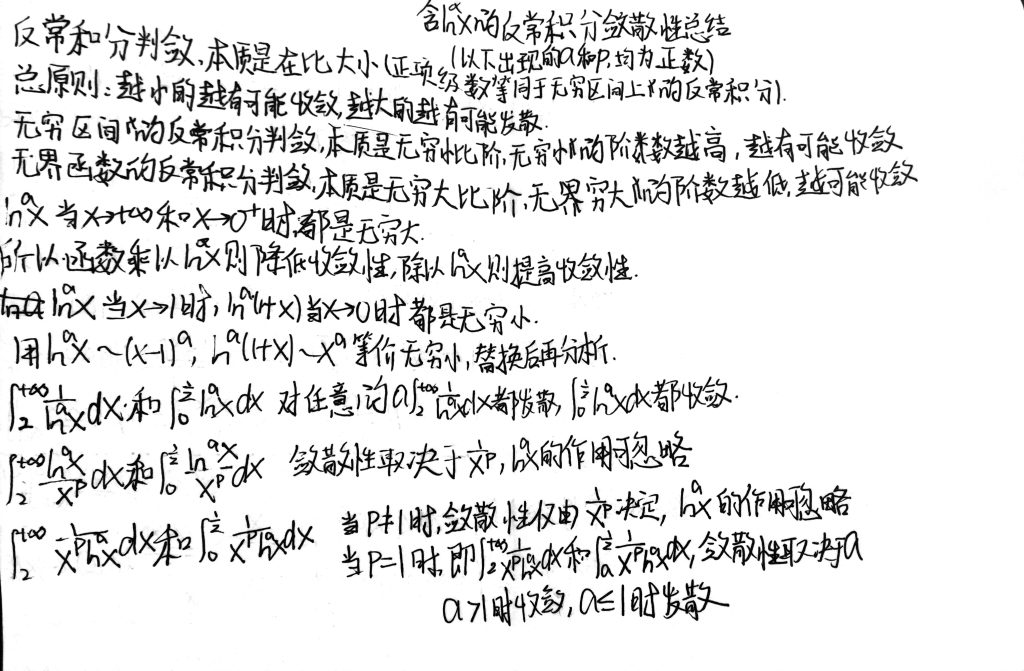 含lnᵃx的反常积分敛散性总结
(以下出现的a和p均为正数)
反常和分判敛,本质是在比大小(正项级数等同于无穷区间上的反常积分).
总原则:越小的越有可能收敛,越大的越有可能发散.
无穷区间的反常积分判敛,本质是无穷小比阶,无穷小的阶数越高,越有可能收敛
无界函数的反常积分判敛,本质是无穷大比阶,无界穷大的阶数越低,越可能收敛
lnᵃx 当x→+∞和x→0⁺时,都是无穷大.
所以函数乘以lnᵃx则降低收敛性,除以lnᵃx则提高收敛性.
lnᵃx 当x→1时, lnᵃ(1+x)当x→0时都是无穷小.
用lnᵃx~(x-1)ᵃ, lnᵃ(1+x)~xᵃ等价无穷小,替换后再分析.
∫₂^{+∞} 1/lnᵃx dx和∫₀^{1/2} lnᵃx dx 对任意的a∫₂^{+∞} 1/lnᵃx dx都发散,∫₀^{1/2} lnᵃx dx都收敛.
∫₂^{+∞} lnᵃx/xᵖ dx和∫₀^{1/2} lnᵃx/xᵖ dx 敛散性取决于1/xᵖ, lnᵃx的作用可忽略
∫₂^{+∞} 1/(xᵖlnᵃx) dx和∫₀^{1/2} 1/(xᵖlnᵃx) dx 当p≠1时,敛散性仅由1/xᵖ决定, lnᵃx的作用可忽略
当p=1时,即∫₂^{+∞} 1/(xᵖlnᵃx) dx和∫ₐ^{1/2} 1/(xᵖlnᵃx) dx,敛散性取决于a
a>1时收敛,a≤1时发散